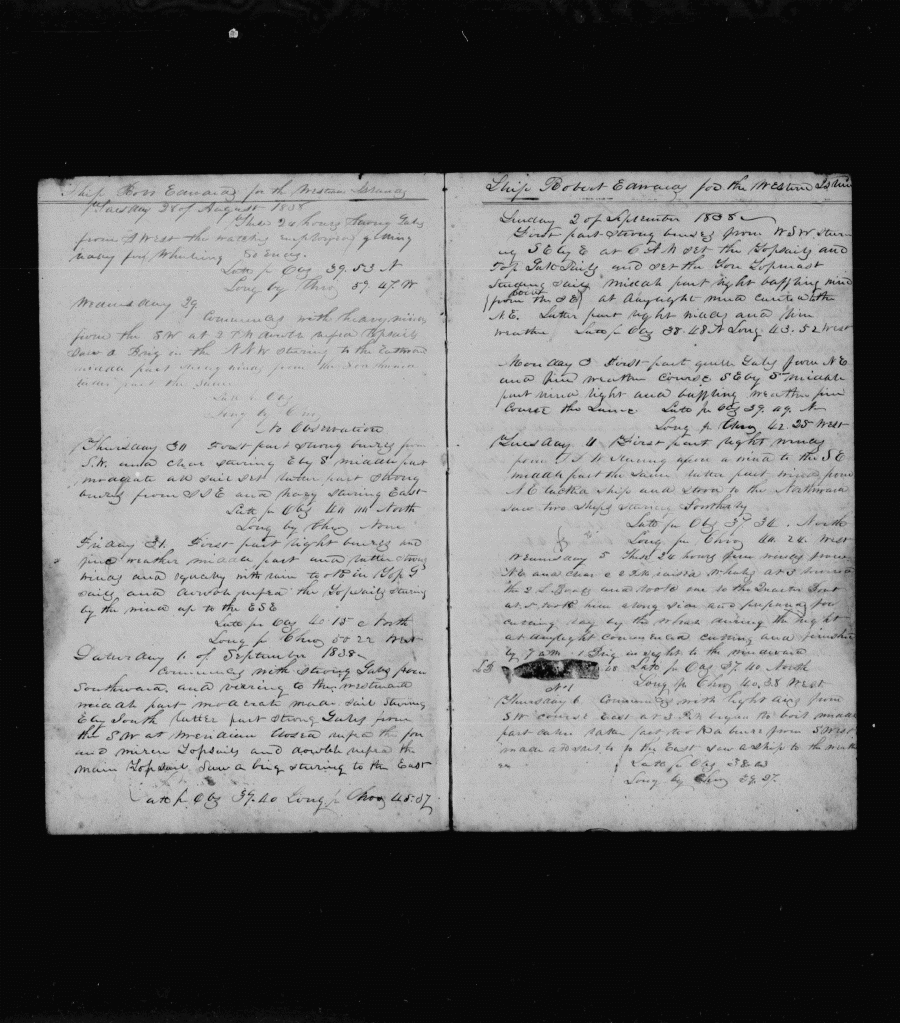 Ship Robt Edwards for the Western Islands
Tuesday 28 of August 1838
These 24 hours Strong Gales
from S West the watches employed
Latt pr Obs 39.53 N
Long by Chro 59.47 W
Wednesday 29
Commences with heavy winds
from the SW at
saw a Brig in the NNW stearing to the Eastward
middle part strong winds from the Southward
latter part the same
Latt by Obs
Long by Chro
No Observation
Thursday 30 First part strong breezes from
S.W. and clear stearing E by S middle part
moderate all sail set latter part strong
breezes from SSE and hazy stearing East
Latt pr Obs 40 00 North
Long by Chro None
Friday 31. First part light breezes and
fine weather middle part and latter strong
winds and squaly with rain took in Top G
sails and double reefed the Topsails stearing
by the wind up to the ESE
Latt pr Obs 40 15 North
Long pr Chro 50 22 West
Saturday 1 of September 1838
Commences with strong Gales from
Southward and veering to the westward
middle part moderate made sail stearing
E by South latter part strong Gales from
the SW at meridian close reefed the fore
and mizen Topsails and double reefed the
main Topsail Saw a brig stearing to the East
Latt pr Obs 39.40 Long pr Chro 45.57
Ship Robert Edwards for the Western Islands
Sunday 2 of September 1838
First part strong breezes from WSW stear
ing SE by E at 6 AM set the Topsails and
Top Galt Sails and set the Fore Topmast
studing sails middle part light baffling wind
about
(from the SE) at daylight wind canted to the
NE. Latter part light winds and fine
weather Latt pr Obs 38.48 N Long 43.52 West
Monday 3 First part quite Gales from NE
and fine weather Course SE by S middle
part wind light and baffling weather fine
Course the Same Latt pr Obs 39.49 N
Long pr Chro 42.25 West
Tuesday 4 First part light winds
from SSW stearing upon a wind to the SE
middle part the same latter part winds from
NE tacked ship and stood to the Northward
saw two ships stearing Southerly
Latt pr Obs 37 34 North
Long pr Chro 40.24 West
Wednesday 5 These 24 hours fine winds from
NE and clear at 2 PM raised Whales at 3 lowered
the 2 L Boats and took one to the Quarter Boat
at 5 took him along side and prepared for
cutting lay by the whale during the night
at daylight commenced cutting and finished
by 7 am 1 Brig in sight to the windward
40 Latt pr Obs 37.40 North
No 1
Long pr Chro 40.38 West
Thursday 6 Commences with light airs from
SW course East at 3 P.M began to boil middle
part calm latter part took a breeze from S West
made all sail to the East saw a Ship to the north
Latt pr Obs 38.03
Long by Chro 39.27